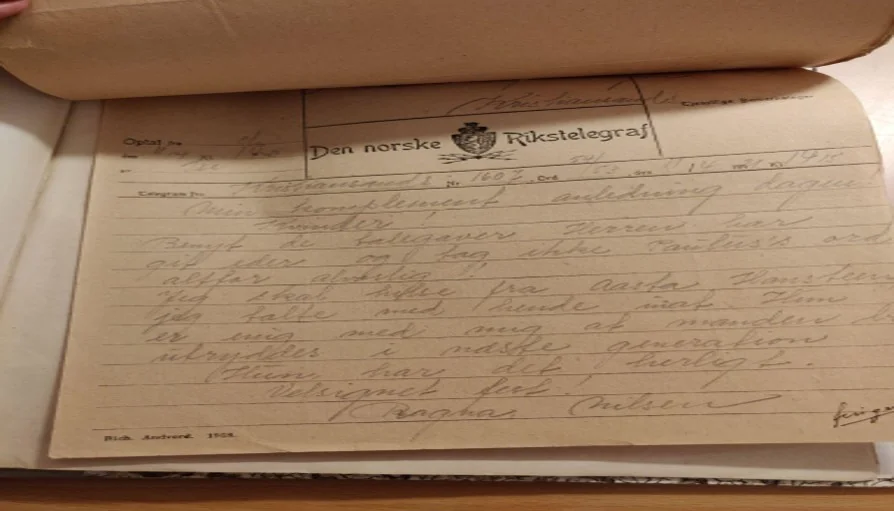 Kristiansands
Optat fra
Den norske Rikstelegraf
Telegram fra Kristiansands Nr. 1607 Ord 54/53 den 11/4
Min kompliment anledning dagen.
Kvinder!
Benyt de talegaver Herren har
git eder og tag ikke Paulus's ord
altfor alvorlig
Jeg skal hilse fra Aasta Hansteen
jeg talte med hende inat Hun
er enig med mig at manden
utryddes i næste generation
Hun har det herligt.
Velsignet fest!
Ragna Nilsen